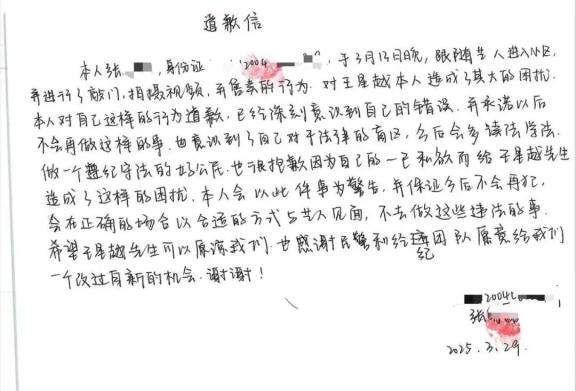 道歉信
本人张 ,身份证 2004 ,于3月13日晚,跟随艺人进入小区,
并进行了敲门,拍摄视频,并售卖的行为.对王星越本人造成了莫大的困扰.
本人对自己这样的行为道歉,已经深刻意识到自己的错误.并承诺以后
不会再做这样的事.也意识到了自己对于法律的盲区,今后会多读法学法.
做一个遵纪守法的好公民.也很抱歉因为自己的一己私欲而给王星越先生
造成了这样的困扰.本人会以此件事为警告,并保证今后不会再犯,
会在正确的场合以合适的方式与艺人见面,不去做这些违法的事.
希望王星越先生可以原谅我们.也感谢民警和经纪团队愿意给我们
一个改过自新的机会.谢谢!
2004
张
2025.3.29.